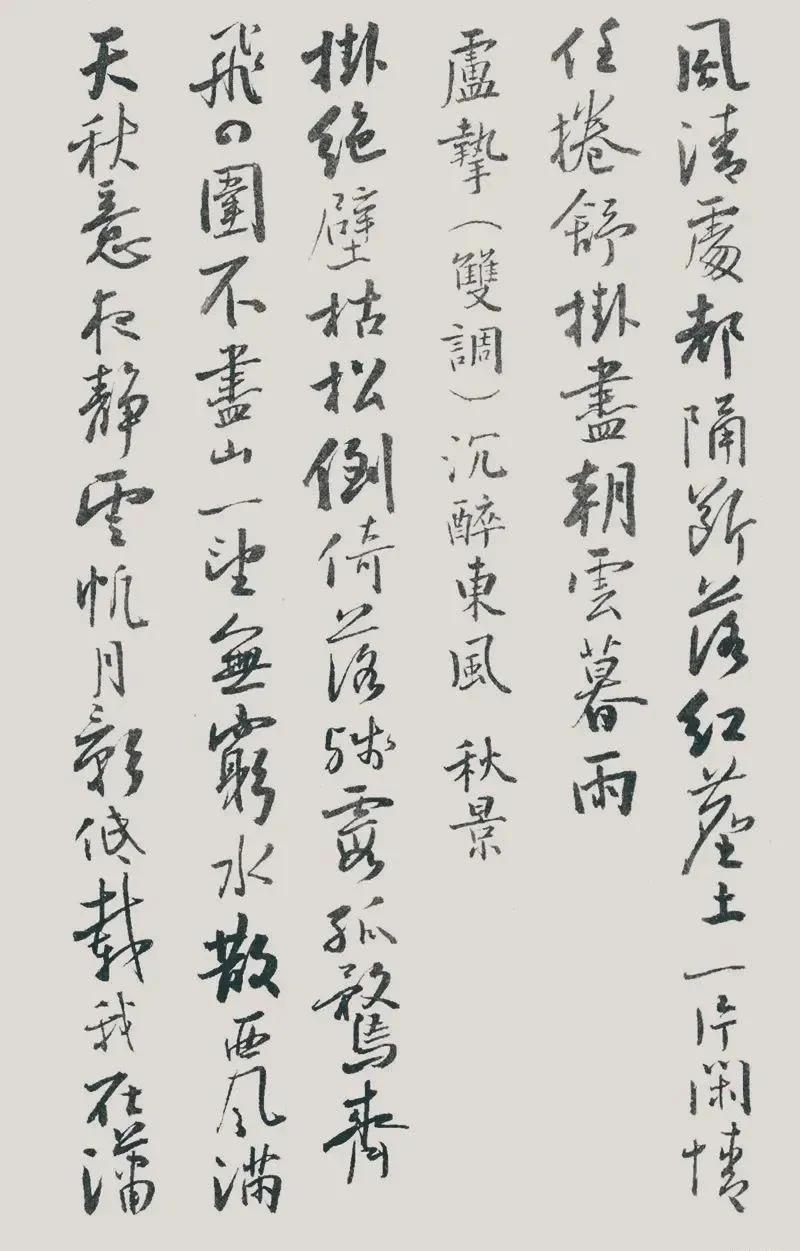 風清處都隔斷落紅塵土一片閑情
任捲舒掛盡朝雲暮雨
盧摯（雙調）沉醉東風 秋景
掛絶壁枯松倒倚落殘霞孤鶩齊
飛四圍不盡山一望無窮水散西風滿
天秋意夜靜雲帆月影低載我在瀟